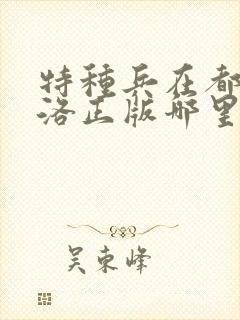 特種兵在都
洛正版哪里
吴東峰